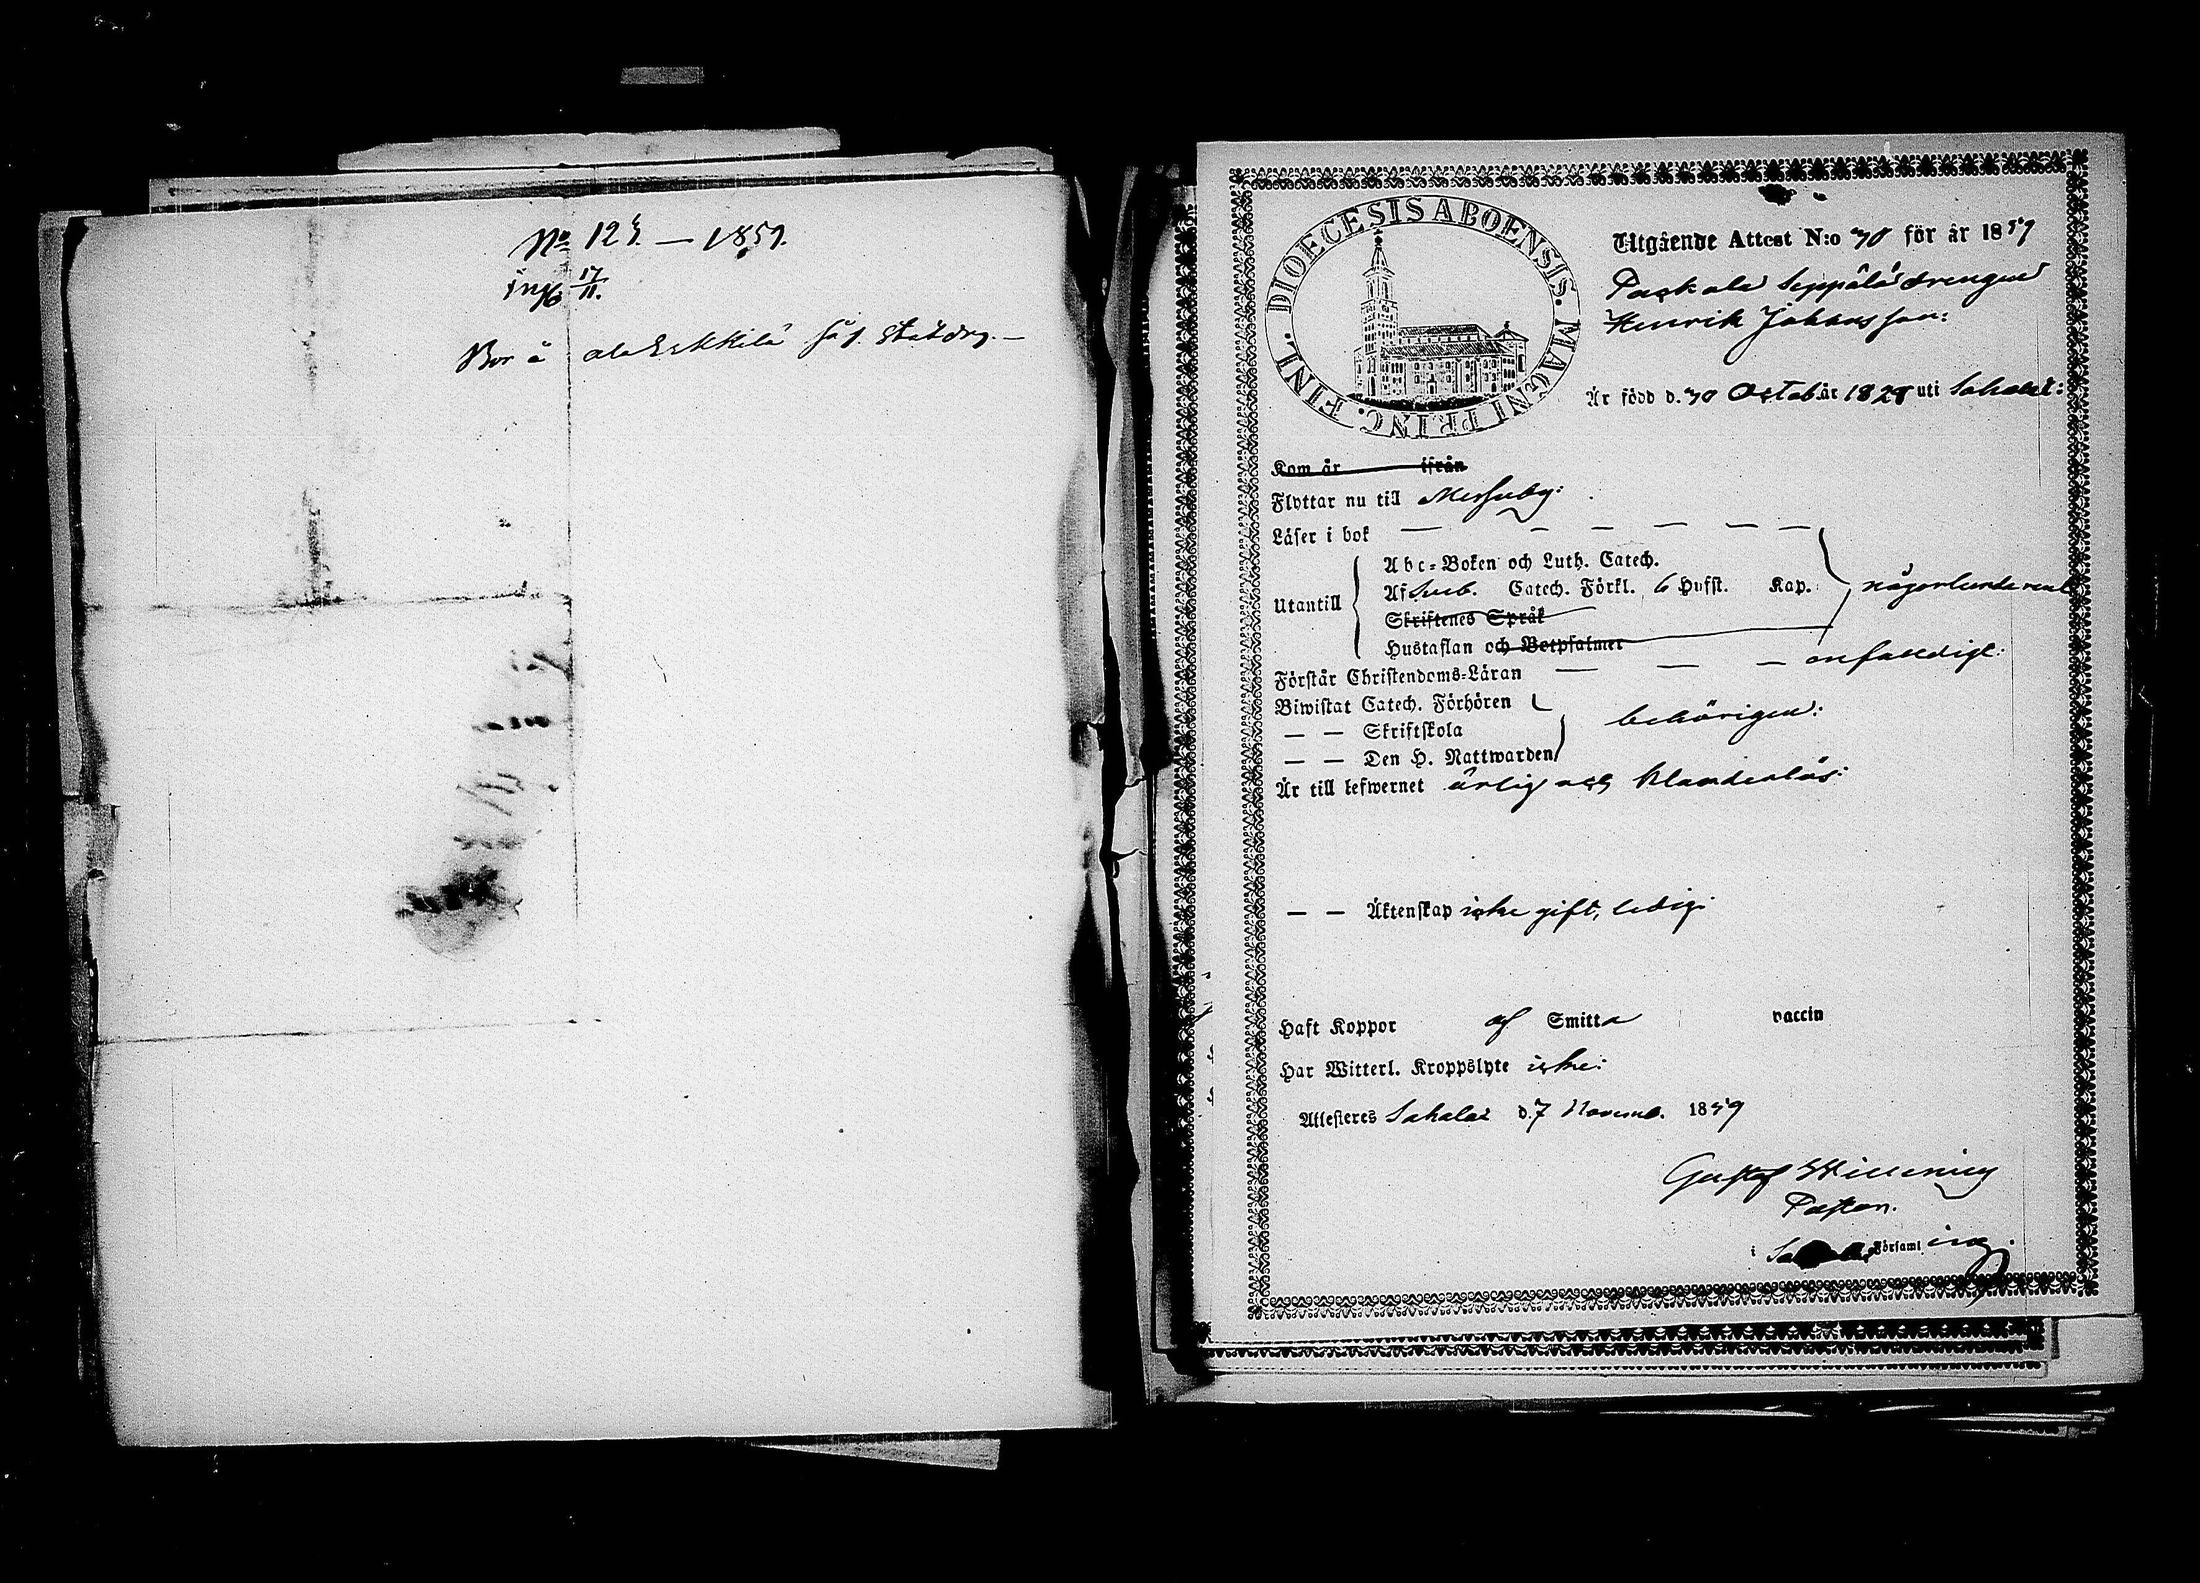 No 123. — 1859.
ing. 17/11.
Bor å ala Eskkilä såg. Statdrg. —
DIOECESIS ABOENSIS. MAGNI PRINC. FINL.
Utgående Attest N:o 70 för år 1859
Paskala Seppälä drengen
Henrik Johansson:
Är född d. 30 Octob. år 1828 uti Sahalax:
Kom år ifrån
Flyttar nu till Messuby:
Läser i bok — — — — — —
Utantill
Abc-Boken och Luth. Catech.
Af Sveb. Catech. Förkl. 6 Hufst. Kap. någorlunda rent
Skriftenes Språk
Hustaflan och Botpsalmer
Förstår Christendoms-Läran — — — enfaldigt:
Biwistat Catech. Förhören
— — Skriftskola behörigen:
— — Den H. Nattwarden
Är till lefwernet ärlig och klanderlös:
— — Äktenskap icke gift, ledig.
Haft Koppor af Smitta vaccin
Har Witterl. Kroppslyte icke:
Attesteres Sahalax d. 7 Novemb. 1859
Gustaf
Pastor.
i Församling.